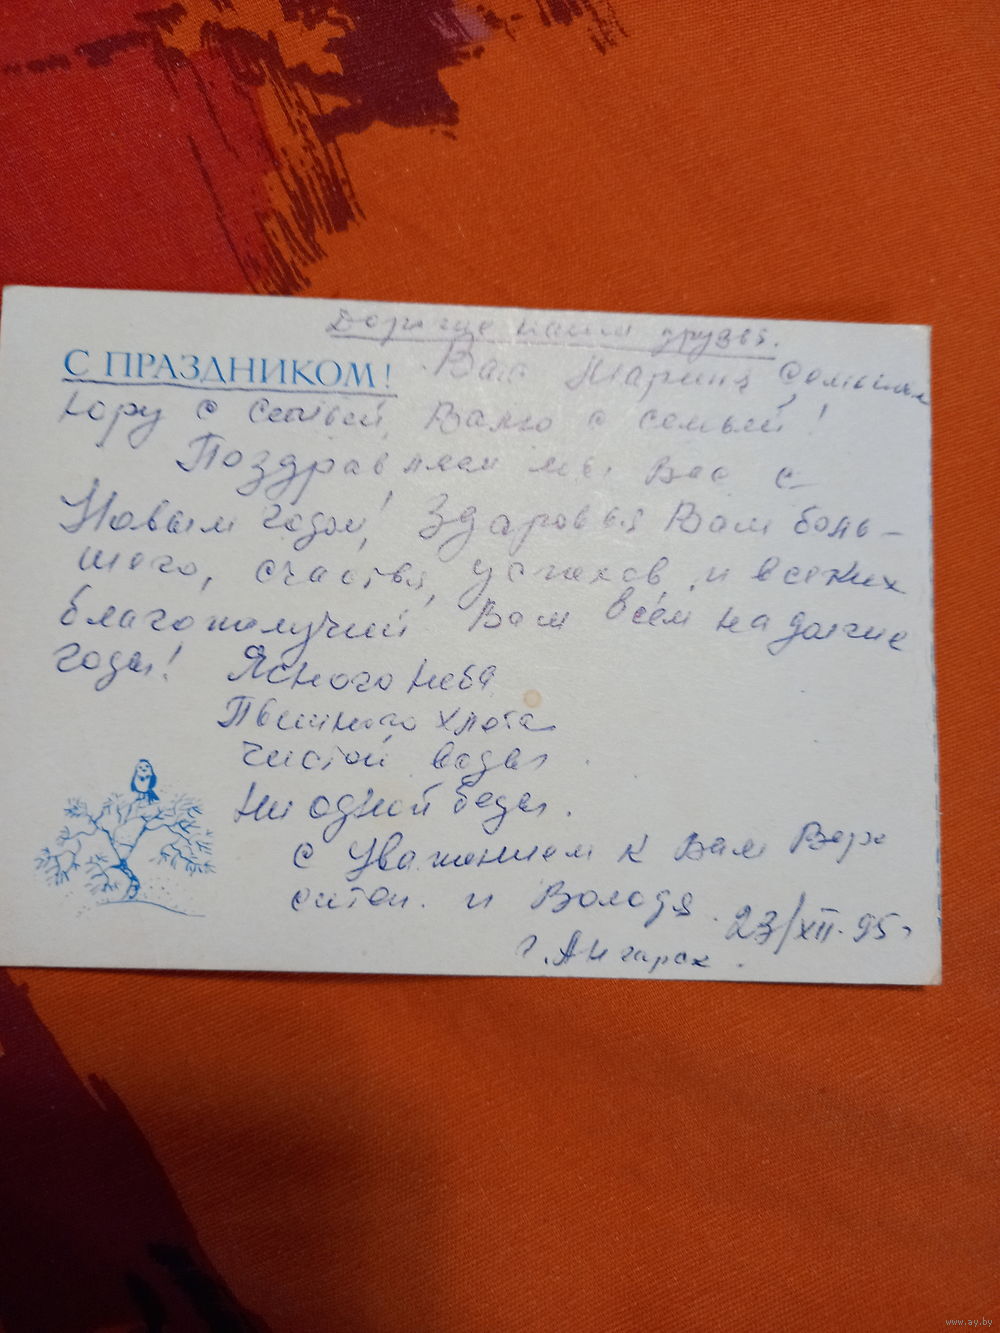 Дорогие наши друзья.
С ПРАЗДНИКОМ!
Вас Марина,
Юру с семьей, Валю с семьей!
Поздравляем мы Вас с
Новым годом! Здоровья Вам боль-
шого, счастья, успехов и всяких
благополучий Вам всем на долгие
годы! Ясного неба
Пшеничного хлеба
Чистой воды
Ни одной беды.
С Уважением к Вам
и Володя. 23/XII-95г
г. Ангарск.
www.ay.by